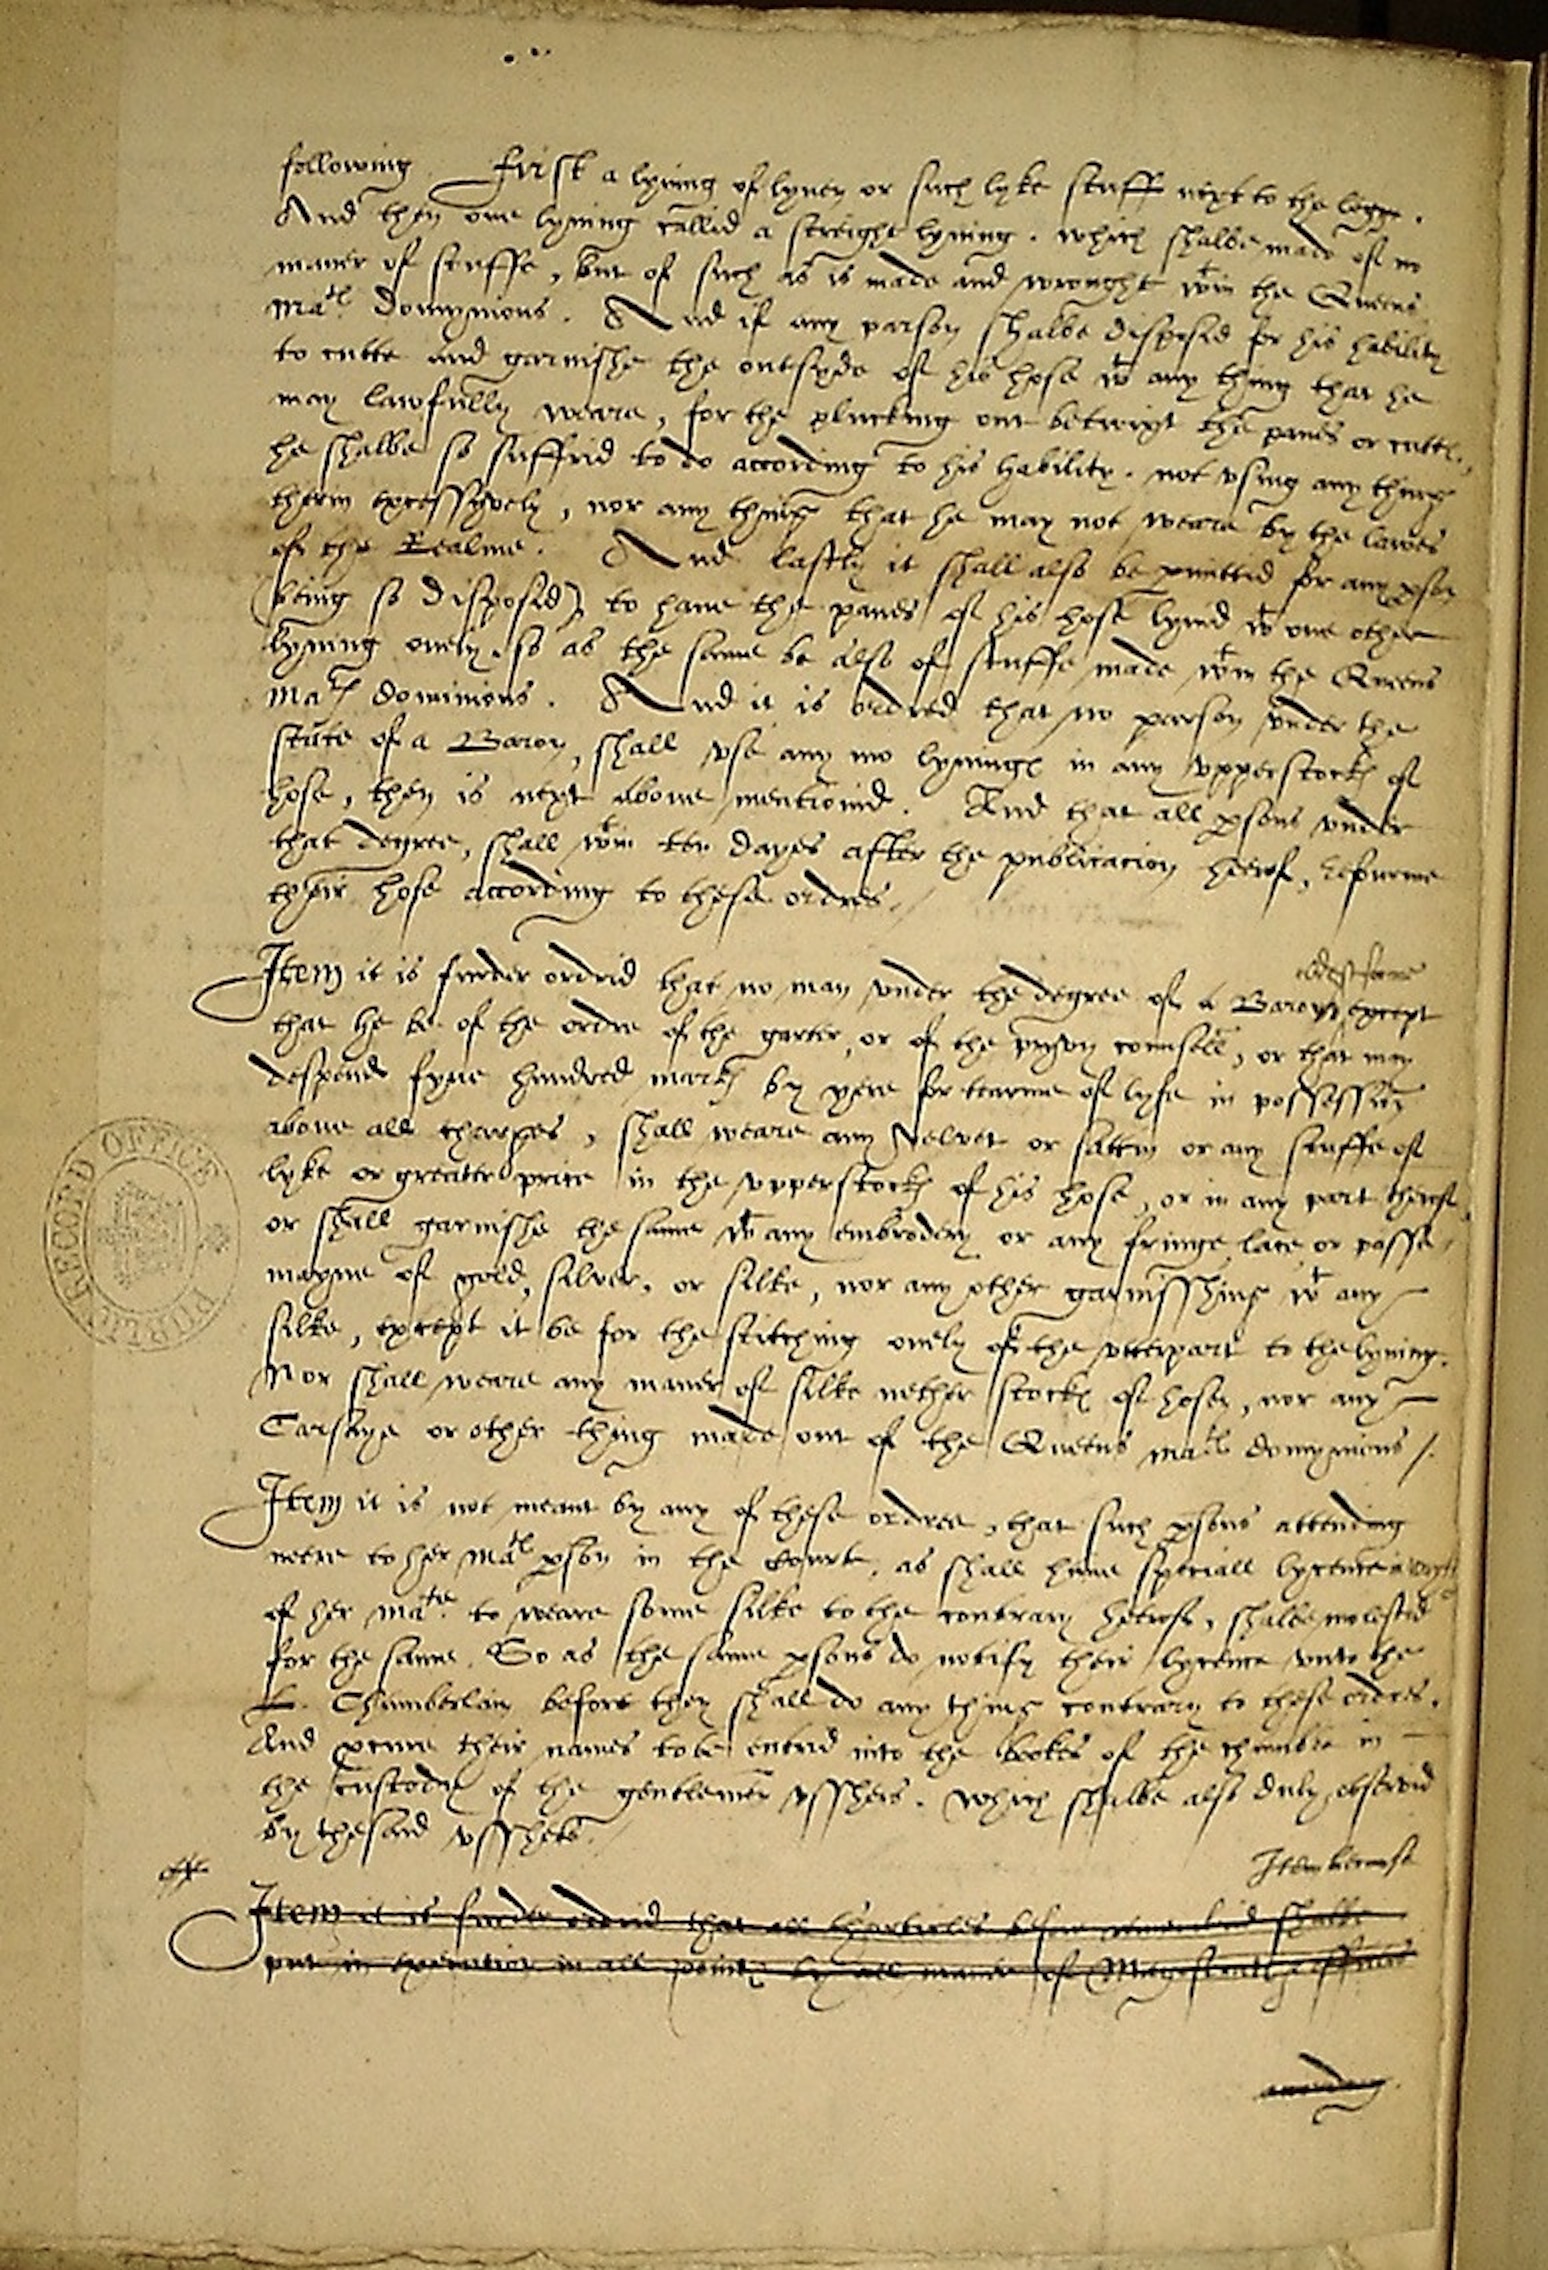 following First a lyning of lynen or such lyke stuff next to the legge.
And then one lyning callid a streight lyning. which shalbe made of no
maner of stuffe, but of such as is made and wrought wtin the Quenes
Mats domynions. And if any parson shalbe disposid for his hability
to cutte and garnishe the outsyde of his hose wt any thing that he
may lawfully weare, for the plucking out betwixt the panes or cutts,
he shalbe so suffrid to do according to his hability. not vsing any thing
therin excessyvely, nor any thing that he may not weare by the lawes
of the Realme. And lastly it shall also be pmittid for any pson
(being so disposid) to haue the panes of his hose lynid wt one other
lyning onely, so as the same be also of stuffe made wtin the Quenes
Mats dominions. And it is ordred that no parson vnder the
state of a Baron, shall vse any mo lynings in any vpperstocks of
hose, then is next above mentionid. And that all psons vnder
that degree, shall wtin ten dayes after the publicacion herof, refourme
their hose according to these ordres.
Item it is furder ordrid that no man vnder the degree of a Barons eldest sonne except
that he be of the ordre of the garter, or of the pryvy counsell, or that may
despend fyue hundred marks by yere for tearme of lyfe in possession
above all charges, shall weare any velvet or sattin or any stuffe of
lyke or greatter price in the vpperstocks of his hose, or in any part therof,
or shall garnishe the same wt any embrodery or any fringe lace or passe
mayne of gold, silver, or silke, nor any other garnisshing wt any
silke, except it be for the stitching onely of the vtterpart to the lyning.
Nor shall weare any maner of silke nether stocks of hosen, nor any
Carseye or other thing made out of the Quenes mats domynions /.
Item it is not meant by any of these ordres, that such psons attending
neere to her Mats pson in the Court, as shall haue speciall lycence
of her Matie to weare some silke to the contrary herof, shalbe molestid
for the same. So as the same psons do notify their lycence vnto the
L. Chamberlain before they shall do any thing contrary to these ordres.
And procure their names to be entrid into the bookes of the chambre in
the custody of the gentlemen vsshers. which shalbe also duly observid
by the said vsshers.
Item because
Item it is furder ordrid that all tharticles before remembrid shalbe
put in execution in all points by all maner of Magistrates officers
according
PUBLIC RECORD OFFICE